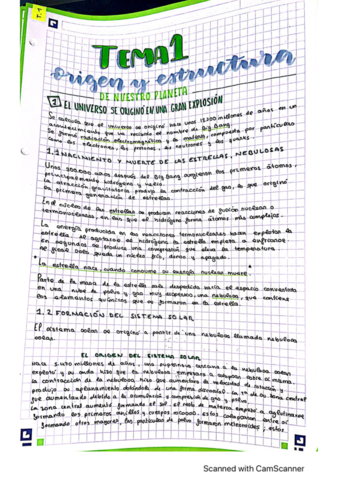 T.1
TEMA 1
origen y estructura
DE NUESTRO PLANETA
1 EL UNIVERSO SE ORIGINÓ EN UNA GRAN EXPLOSIÓN
Se calcula que el universo se originó hace unos 13.700 millones de años en un
acontecimiento que se conoce con el nombre de Big Bang.
Se formó radiación electromagnética y materia, compuesta por partículas
como los electrones, los protones, los neutrones y los quarks.
1.1 NACIMIENTO Y MUERTE DE LAS ESTRELLAS, NEBULOSAS
Unos 300.000 años después del Big Bang surgieron los primeros átomos,
principalmente hidrógeno y helio.
La atracción gravitatoria produjo la contracción del gas, lo que originó
la primera generación de estrellas.
En el núcleo de las estrellas se producen reacciones de fusión nuclear o
termonucleares, en las que el hidrógeno forma átomos más complejos.
La energía producida en las reacciones termonucleares hacen explotar la
estrella. Al agotarse el hidrógeno la estrella empieza a enfriarse.
En segundos se produce una compresión que eleva la temperatura.
Al final solo queda un núcleo frío, denso y apagado.
La estrella nace, cuando consume su energía nuclear muere.
Parte de la masa de la estrella sale despedida hacia el espacio convertida
en una nube de polvo y gas muy dispersa, una nebulosa, que contiene
los elementos químicos que se formaron en la estrella.
1.2 FORMACIÓN DEL SISTEMA SOLAR
El sistema solar se originó a partir de una nebulosa llamada nebulosa
solar.
EL ORIGEN DEL SISTEMA SOLAR
Hace 5.000 millones de años, una supernova cercana a la nebulosa solar
explotó y su onda hizo que la nebulosa empezara a colapsar sobre sí misma.
La contracción de la nebulosa, hizo que aumentara la velocidad de rotación y
produjo su aplanamiento dándole de una forma discoidal. La Tª de su zona central
fue aumentando debido a la acumulación y compresión de gas y polvo.
La zona central aumentó formando el sol. El resto de materia empezó a aglutinarse
formando los primeros anillos y cuerpos rocosos. Estos colapsaron entre sí
formando otros mayores, las partículas de polvo formaron meteoroides, estos
Scanned with CamScanner